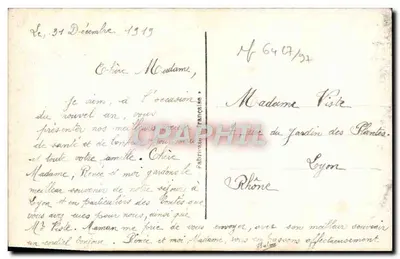 Le, 31 Décembre 1919
Chère Madame,
Je viens, à l'occasion
du nouvel an, vous
présenter nos meilleurs
de santé et de bonheur
et toute votre famille. Chère
Madame, Renée et moi gardons le
meilleur souvenir de notre séjour à
Lyon et en particulier des bontés que
vous avez eues pour nous, ainsi que
Mr Viste. Maman me prie de vous envoyer, avec son meilleur souvenir
un cordial bonjour. Renée et moi Madame, vous embrassons affectueusement
Madame Viste
rue du Jardin des Plantes
Lyon
Rhône
CPARAMA.com